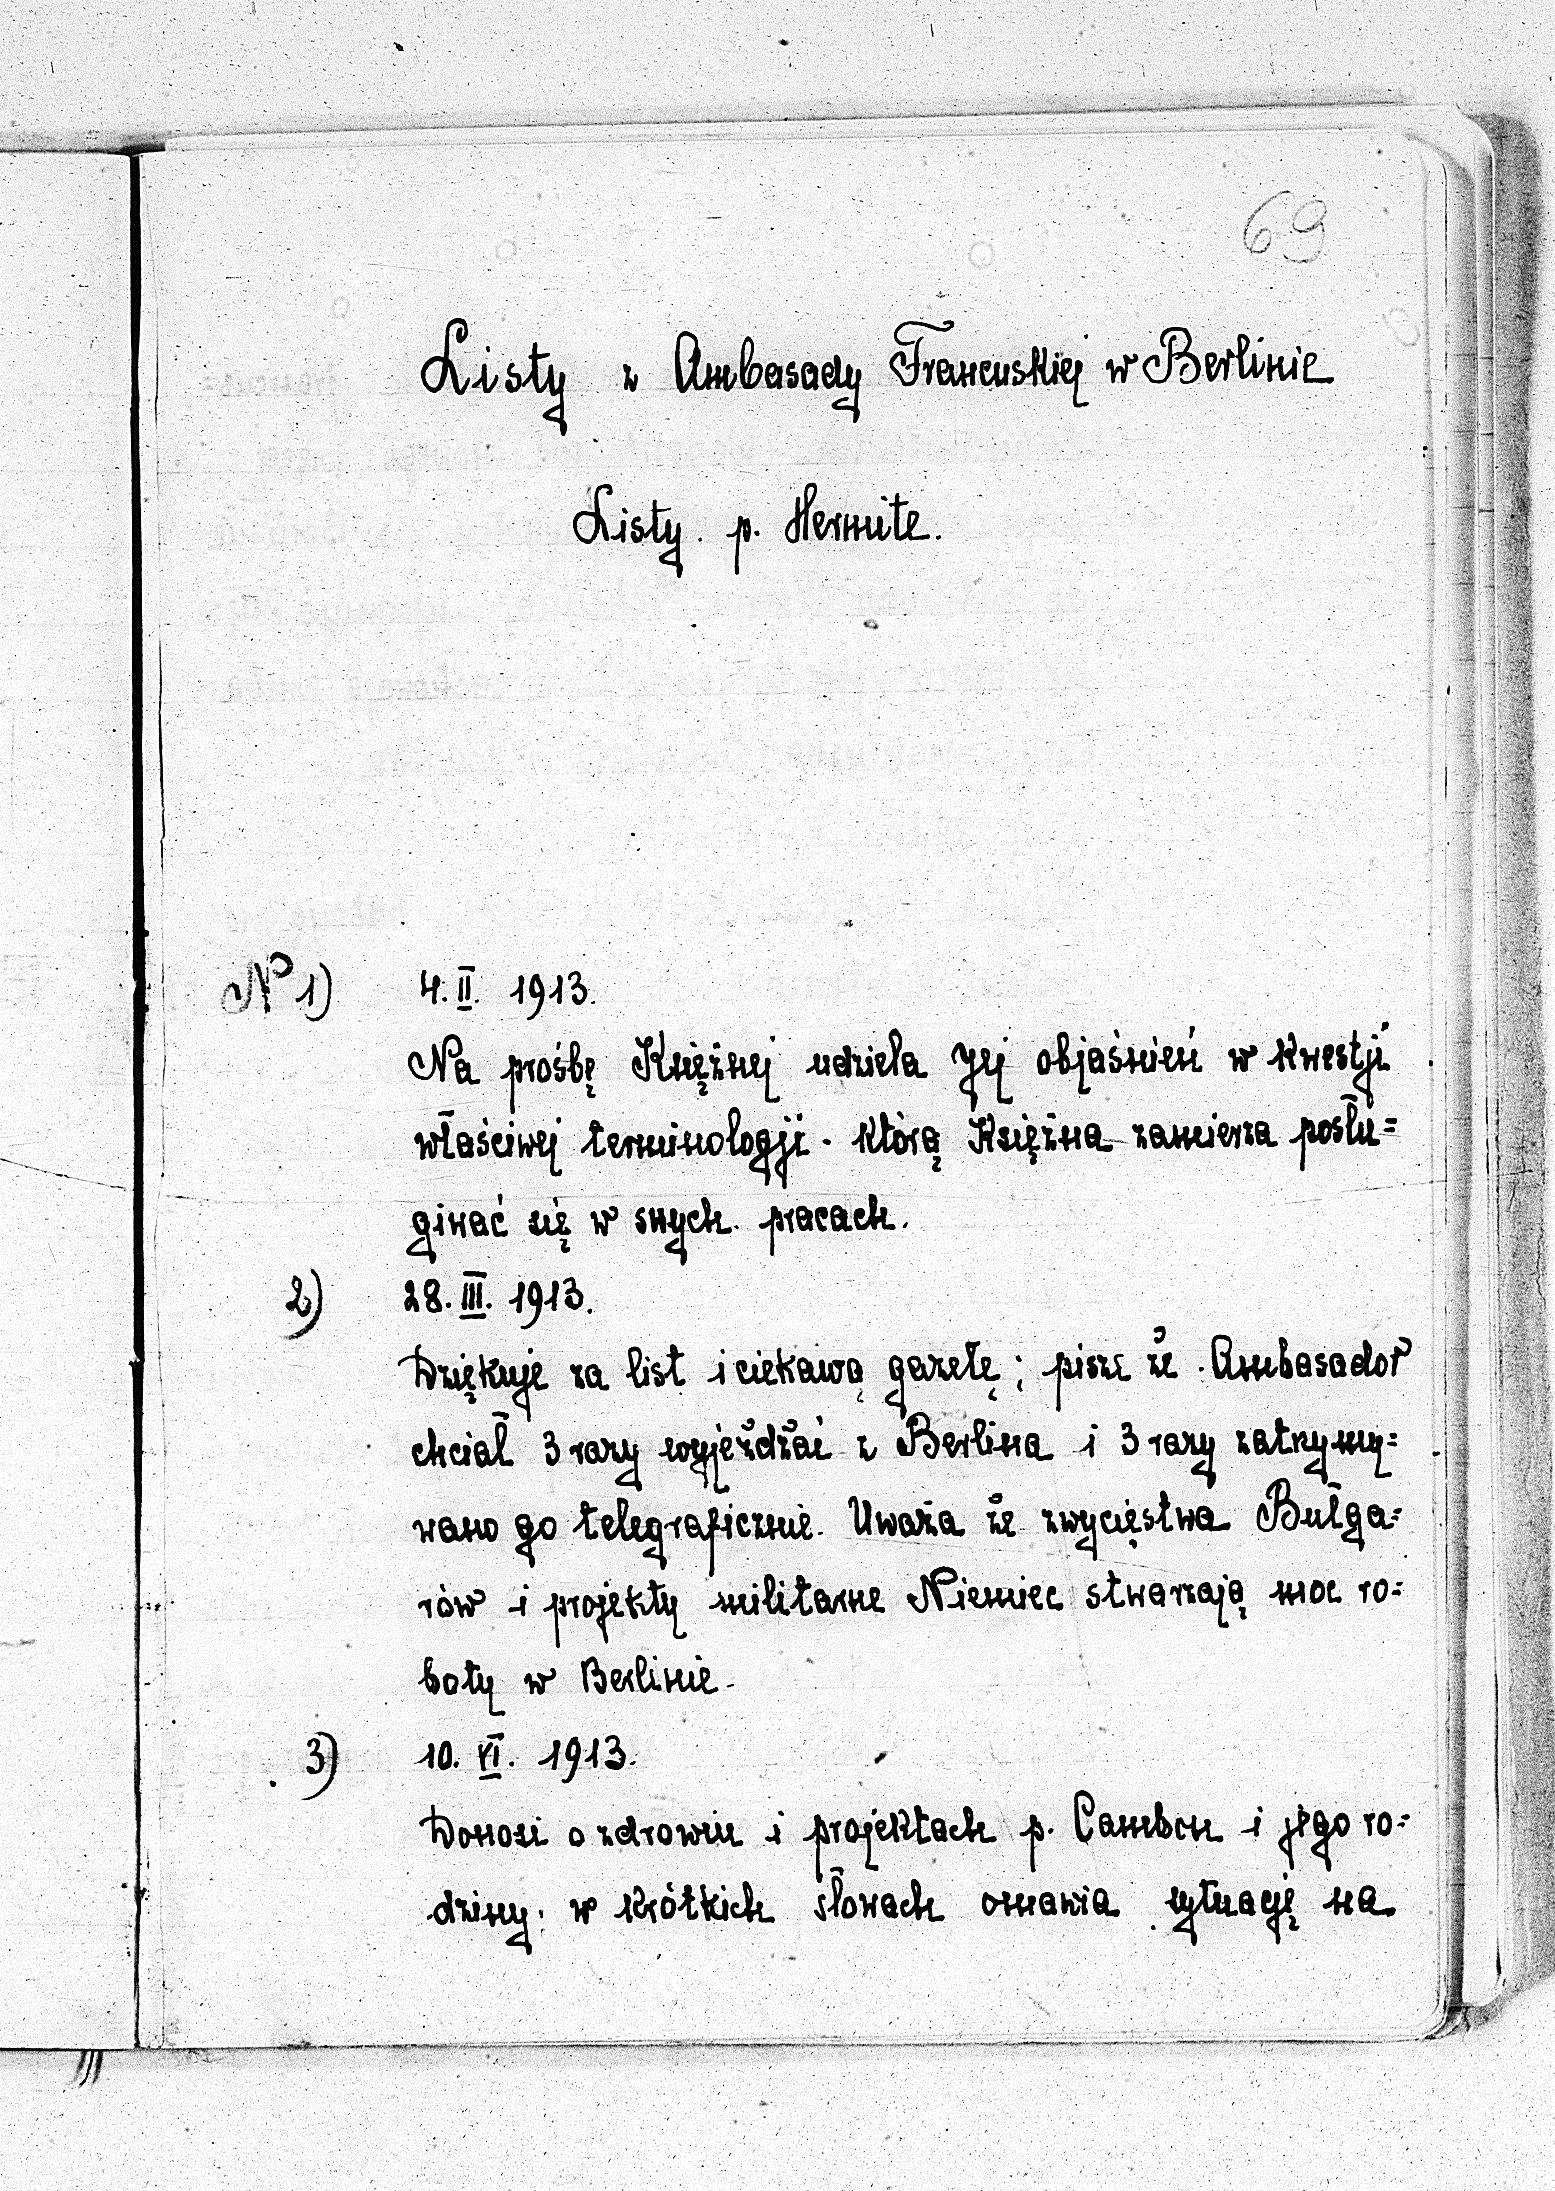 69
Listy z Ambasady Francuskiej w Berlinie
Listy p. Hermite.
No 1) 4. II. 1913.
Na prośbę Księżnej udziela Jej objaśnień w kwestji
właściwej terminologji - którą Księżna zamierza posłu=
giwać się w swych pracach.
2) 28. III. 1913.
Dziękuje za list i ciekawą gazetę; pisze że Ambasador
chciał 3 razy wyjeżdżać z Berlina i 3 razy zatrzymy=
wano go telegraficznie. Uważa że zwycięstwa Bułga=
rów i projekty militarne Niemiec stwarzają moc ro=
boty w Berlinie.
3) 10. VI. 1913.
Donosi o zdrowiu i projektach p. Cambon i jego ro=
dziny; w krótkich słowach omawia sytuację na